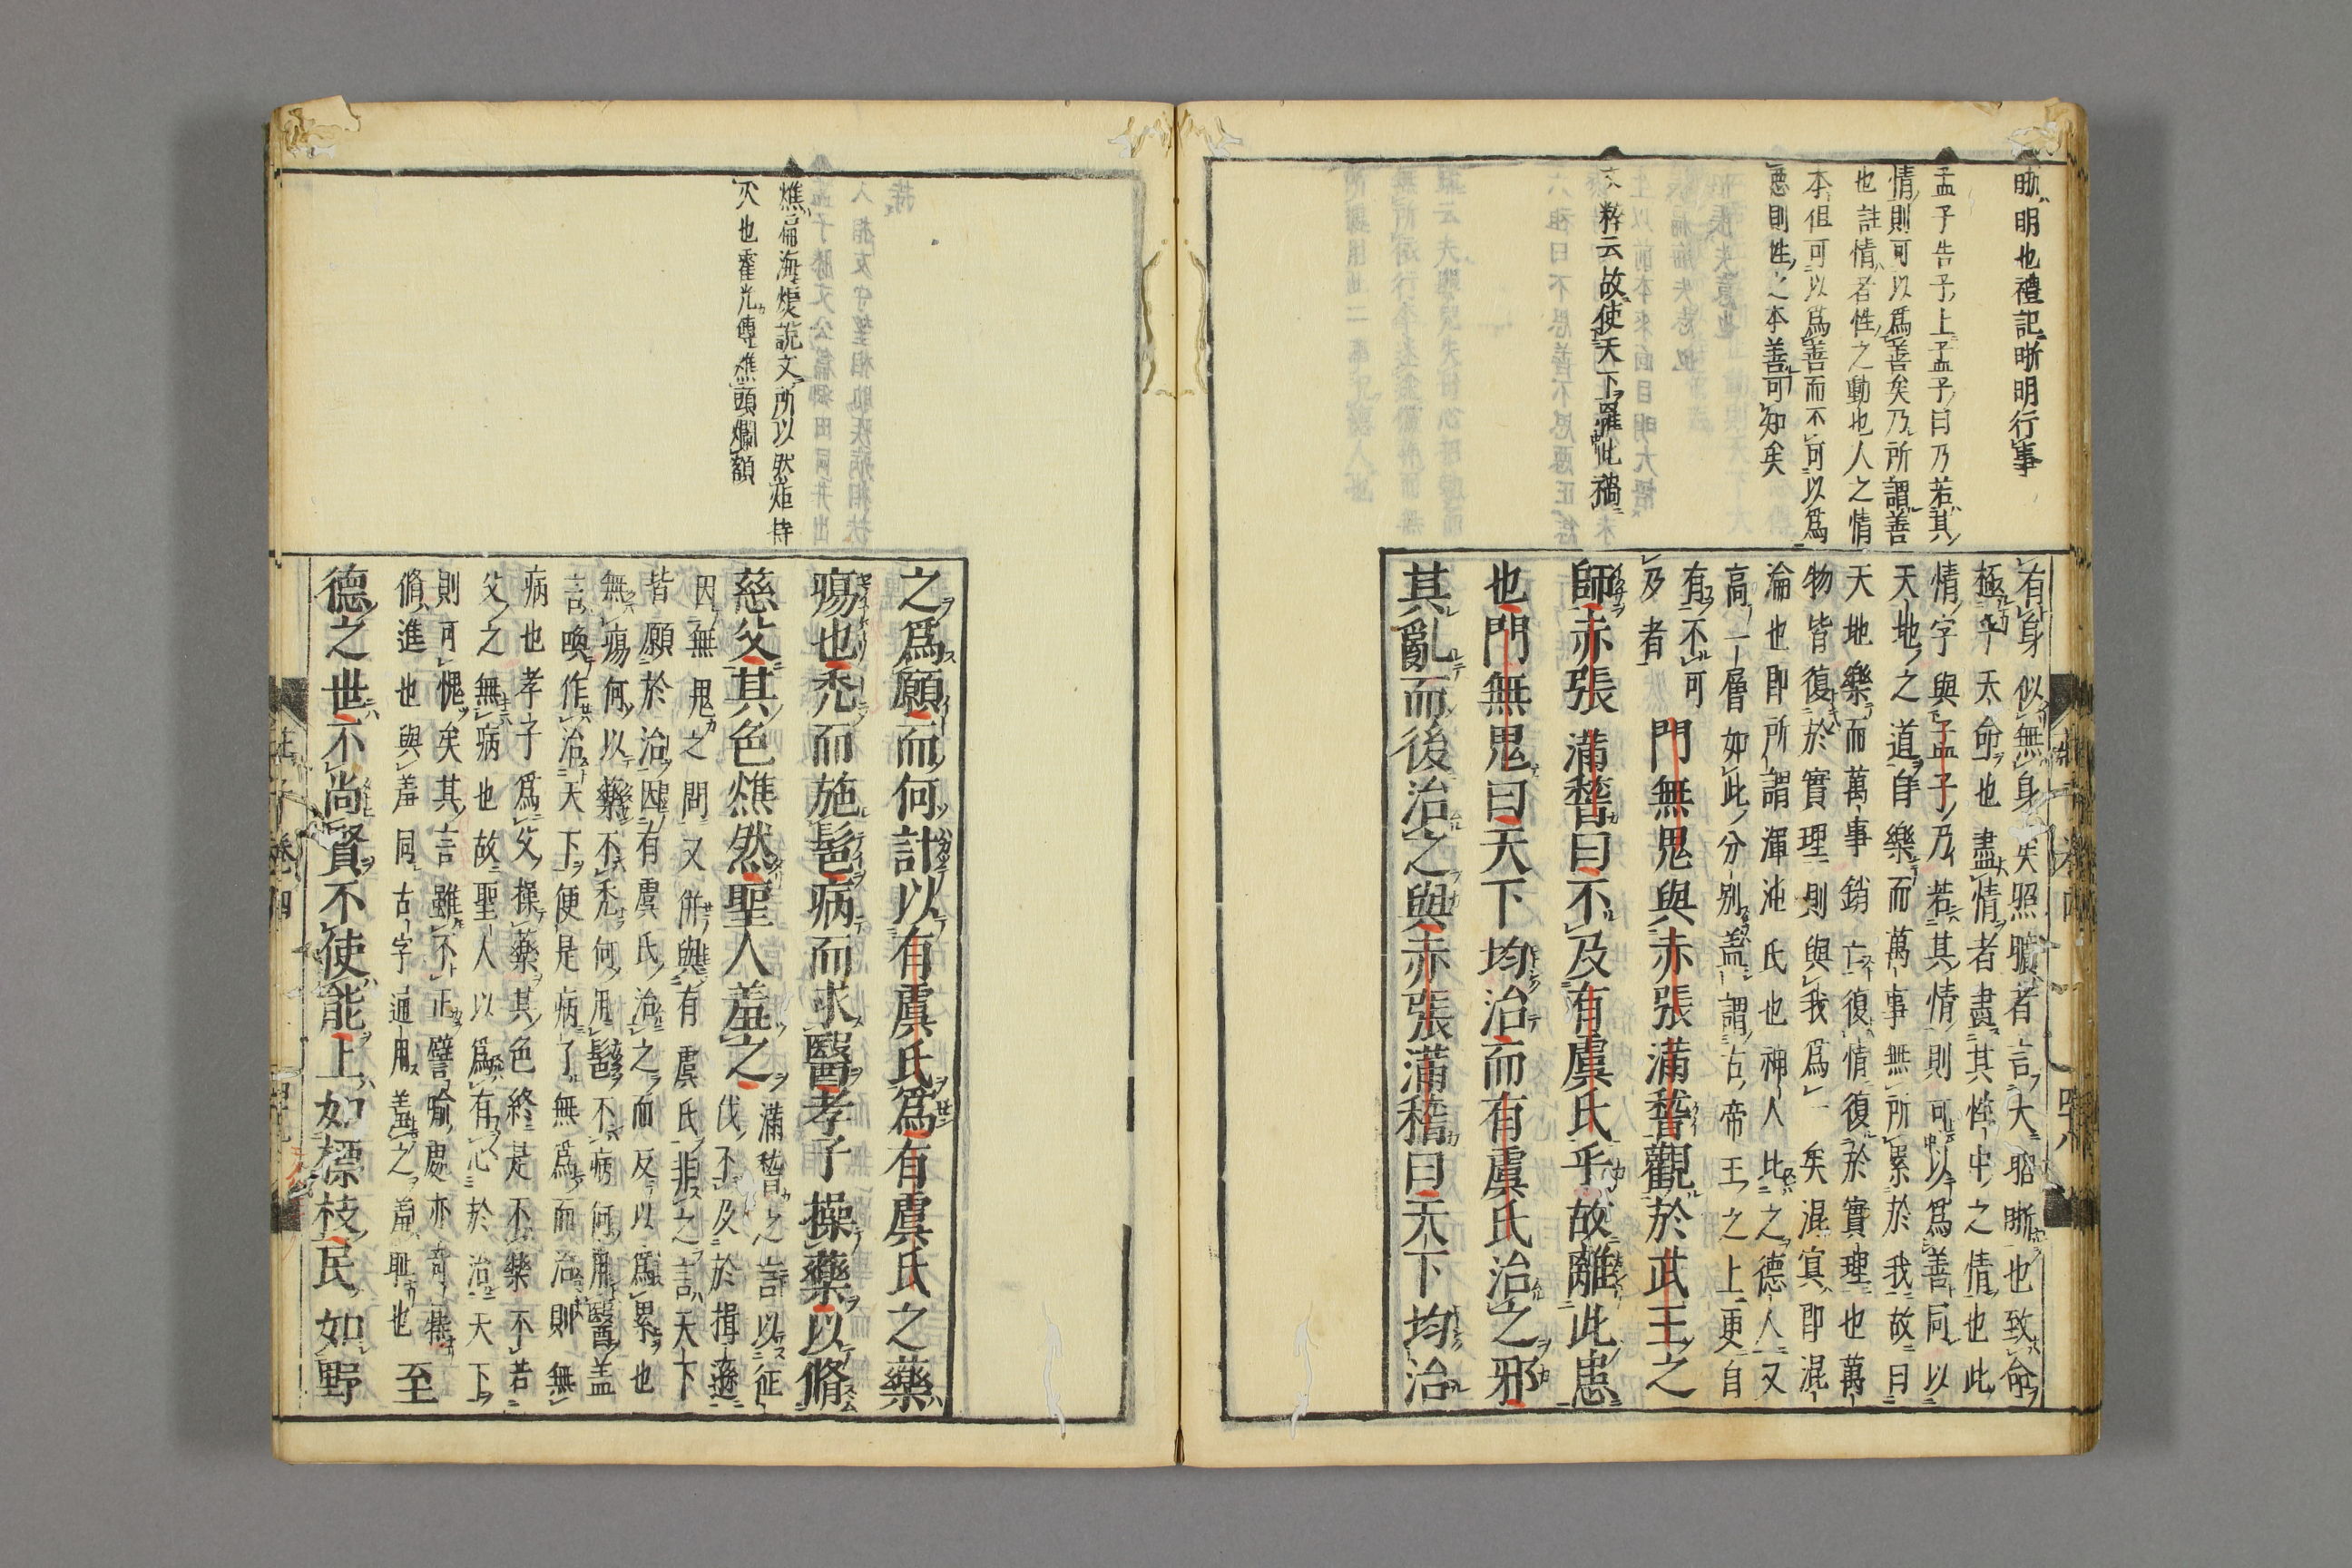 晣明也禮記晣明行事
孟子告子上孟子曰乃若其
情則可以爲善矣乃所謂善
也註情者性之動也人之情
本但可以爲善而不可以爲
惡則性之本善可知矣
粹云故使天下罹此禍
有身似無身矣照曠者言大昭晣也致命
極乎天命也盡情者盡其性中之情也此
情字與孟子乃若其情則可以爲善同以
天地之道自樂而萬事無所累於我故曰
天地樂而萬事銷亡復情復於實理也萬
物皆復於實理則與我爲一矣混冥即混
淪也即所謂渾沌氏也神人比之德人又
高一層如此分別盖謂古帝王之上更自
有不可
及者
門無鬼與赤張滿稽觀於武王之
師赤張滿稽曰不及有虞氏乎故離此患
也門無鬼曰天下均治而有虞氏治之邪
其亂而後治之與赤張滿稽曰天下均治
燋嵛海煗說文所以然炬持
火也霍光傳燋頭爛額
之爲願而何計以有虞氏爲有虞氏之藥
瘍也禿而施髢病而求醫孝子操藥以脩
慈父其色燋然聖人羞之
滿稽之言以征
伐不及於揖遜
因無鬼之問又併與有虞氏非之言天下
皆願於治因有虞氏治之而反以爲累也
無瘍何以藥不禿何用髢不病何用醫盖
言喚作治天下便是病了無爲而治則無
病也孝子爲父操藥其色終是不樂不若
父之無病也故聖人以爲有心於治天下
則可愧矣其言雖不正譬喻處亦奇
脩進也與羞同古字通用羞之羞恥也
至
德之世不尚賢不使能上如標枝民如野
莊子卷四